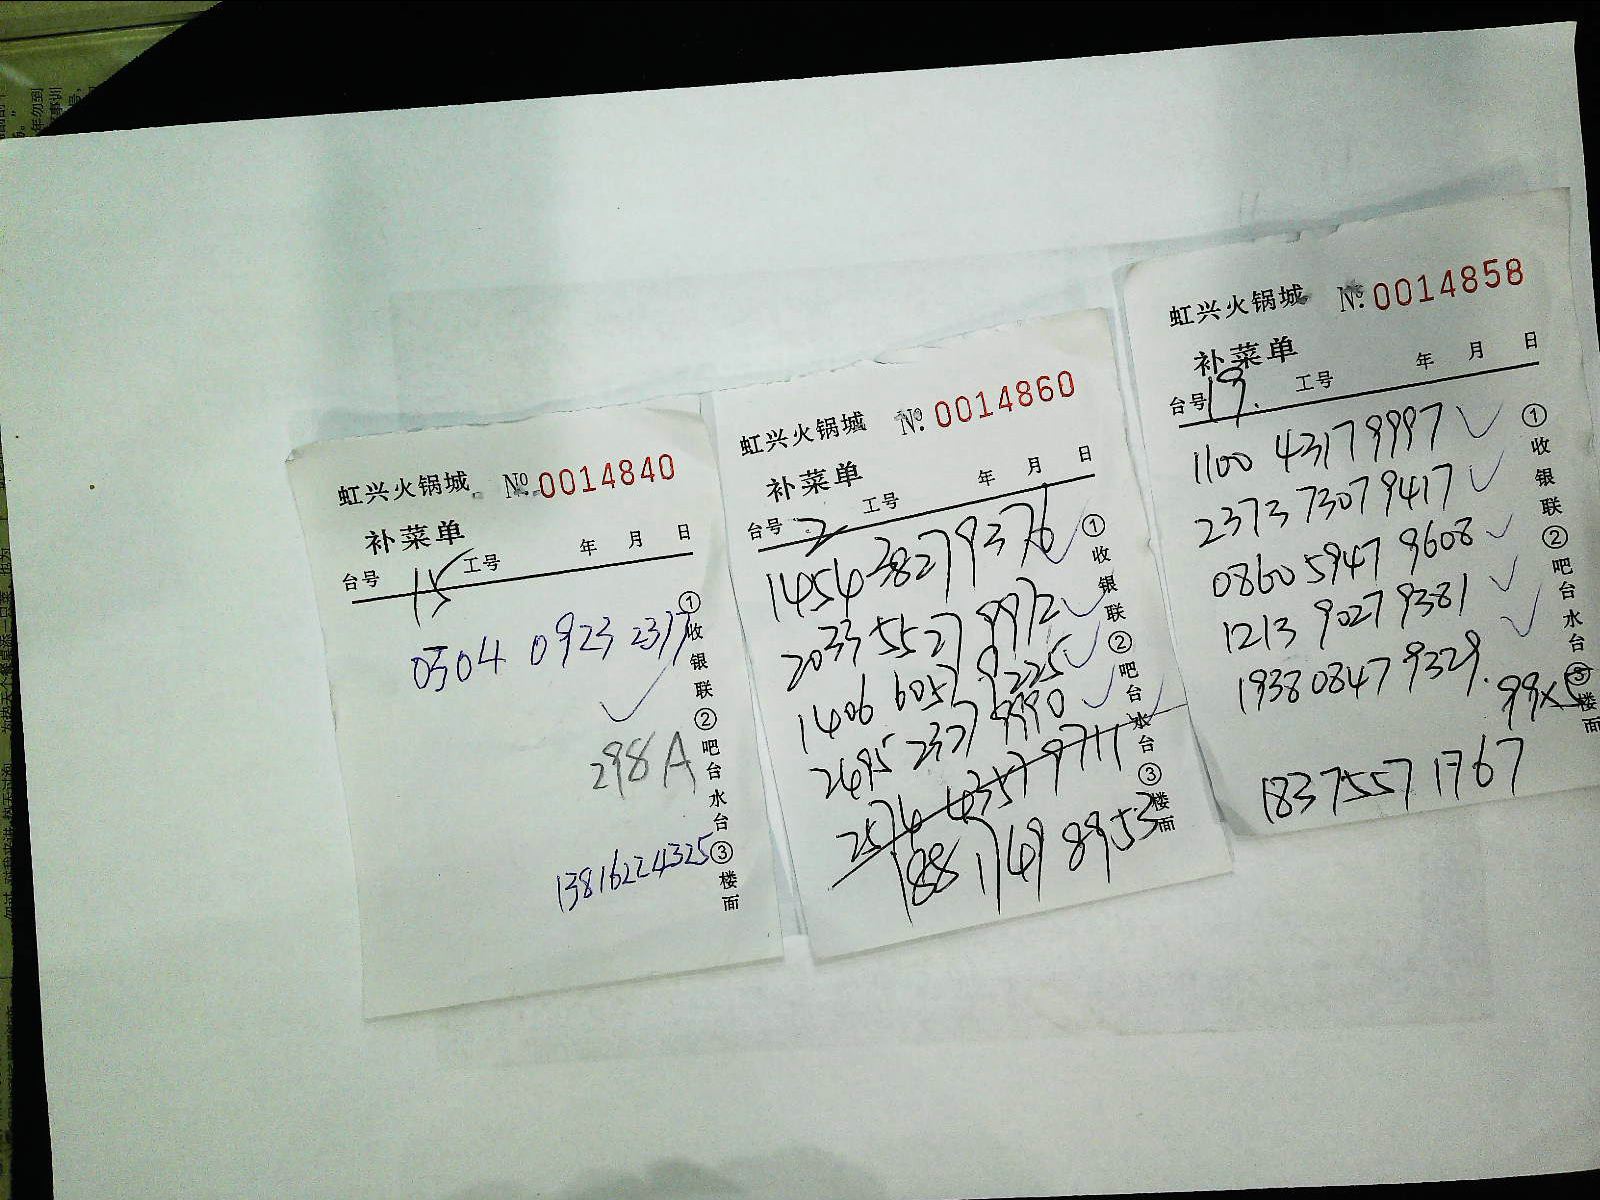 虹兴火锅城 №.0014840
补菜单
台号 15 工号 年 月 日
0504 0923 2317
298A
13816224325
①收银联②吧台水台③楼面
虹兴火锅城 №.0014860
补菜单
台号 2 工号 年 月 日
1454 3827 9376
2033 5527 9972
1406 6057 9225
2495 2327 9990
2574 4357 9711
188 1749 8953
①收银联②吧台水台③楼面
虹兴火锅城 №.0014858
补菜单
台号 19. 工号 年 月 日
1100 4317 9997
2373 7307 9417
0860 5947 9608
1213 9027 9381
1938 0847 9329.
99x5
18375571767
①收银联②吧台水台③楼面